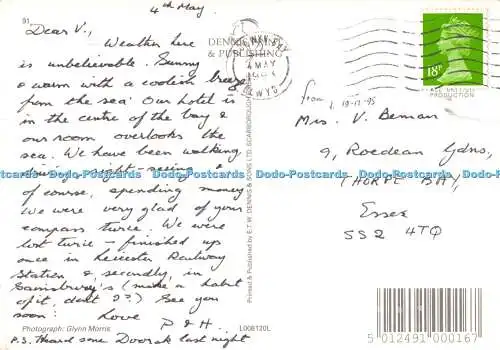 91
4th May
Dear V.,
Weather here
is unbelievable. Sunny
& warm with a cooling breeze
from the sea. Our hotel is
in the centre of the bay &
our room overlooks the
sea. We have been walking,
sight-seeing &
of course, spending money
We were very glad of your
compass twice. We were
lost twice – finished up
once in Leicester Railway
Station & secondly, in
Sainsbury's (make a habit
of it, don't I?) See you
soon. Love P & H.
P.S. Heard some Dvorak last night
Photograph: Glynn Morris
L006120L
DENNIS PRINT
& PUBLISHING
Printed & Published by E.T.W. DENNIS & SONS LTD. SCARBOROUGH
4 MAY
CLWYD
18P
PRODUCTION
from 19-12-95
Mrs. V. Beman
9, Roedean Gdns,
THORPE BAY,
Essex
SS2 4TQ
Dodo-Postcards Dodo-Postcards Dodo-Postcards Dodo-Postcards Dodo-Postcards
5 012491 000167